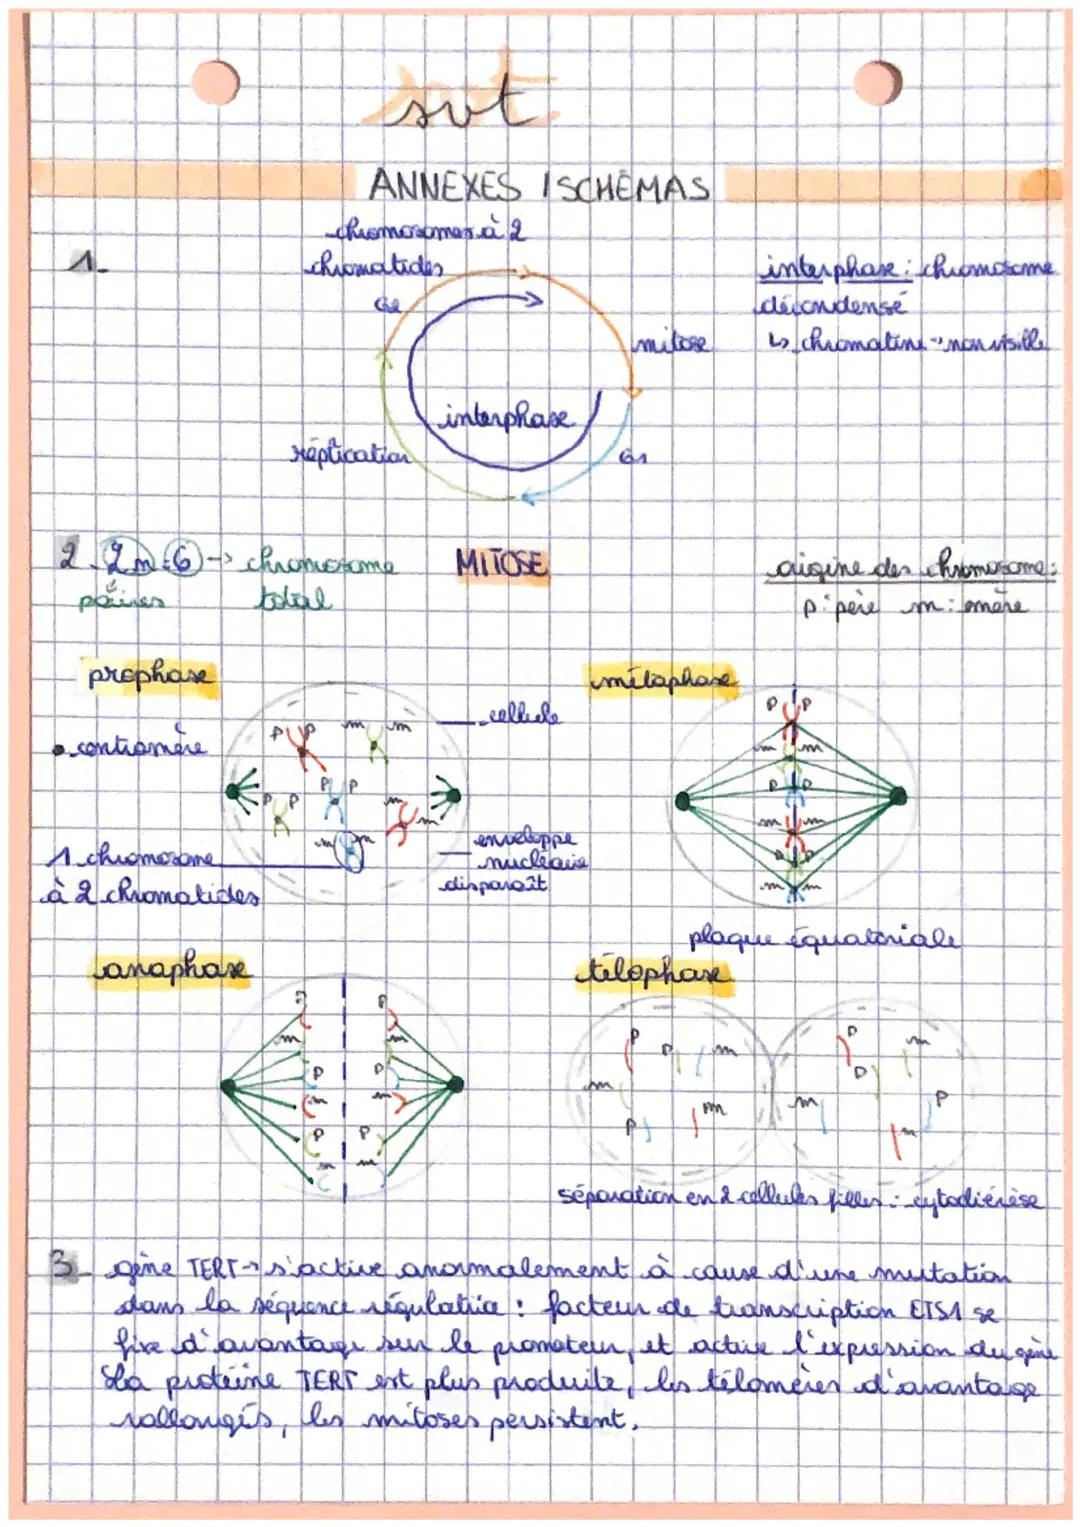 svt
ANNEXES / SCHÉMAS
1.
chromosomes à 2
chromatides
G2
mitose
interphase
réplication
G1
interphase : chromosome
décondensé
↳ chromatine → non visible
2. 2n=6 → chromosome
paires total
MITOSE
origine des chromosome :
p : père m : mère
prophase
centromère
1 chromosome
à 2 chromatides
P P
m m
P P
P P
m m
m m
cellule
enveloppe
nucléaire
disparaît
métaphase
P P
m m
P P
m m
P P
m m
plaque équatoriale
anaphase
P P
m m
P P
m m
P P
m m
télophase
P P m
m
P m
P m
P
m P
m
séparation en 2 cellules filles : cytodiérèse
3. gène TERT → s'active anormalement à cause d'une mutation
dans la séquence régulatrice : facteur de transcription ETS1 se
fixe d'avantage sur le promoteur, et active l'expression du gène
La protéine TERT est plus produite, les télomères d'avantage
rallongés, les mitoses persistent.